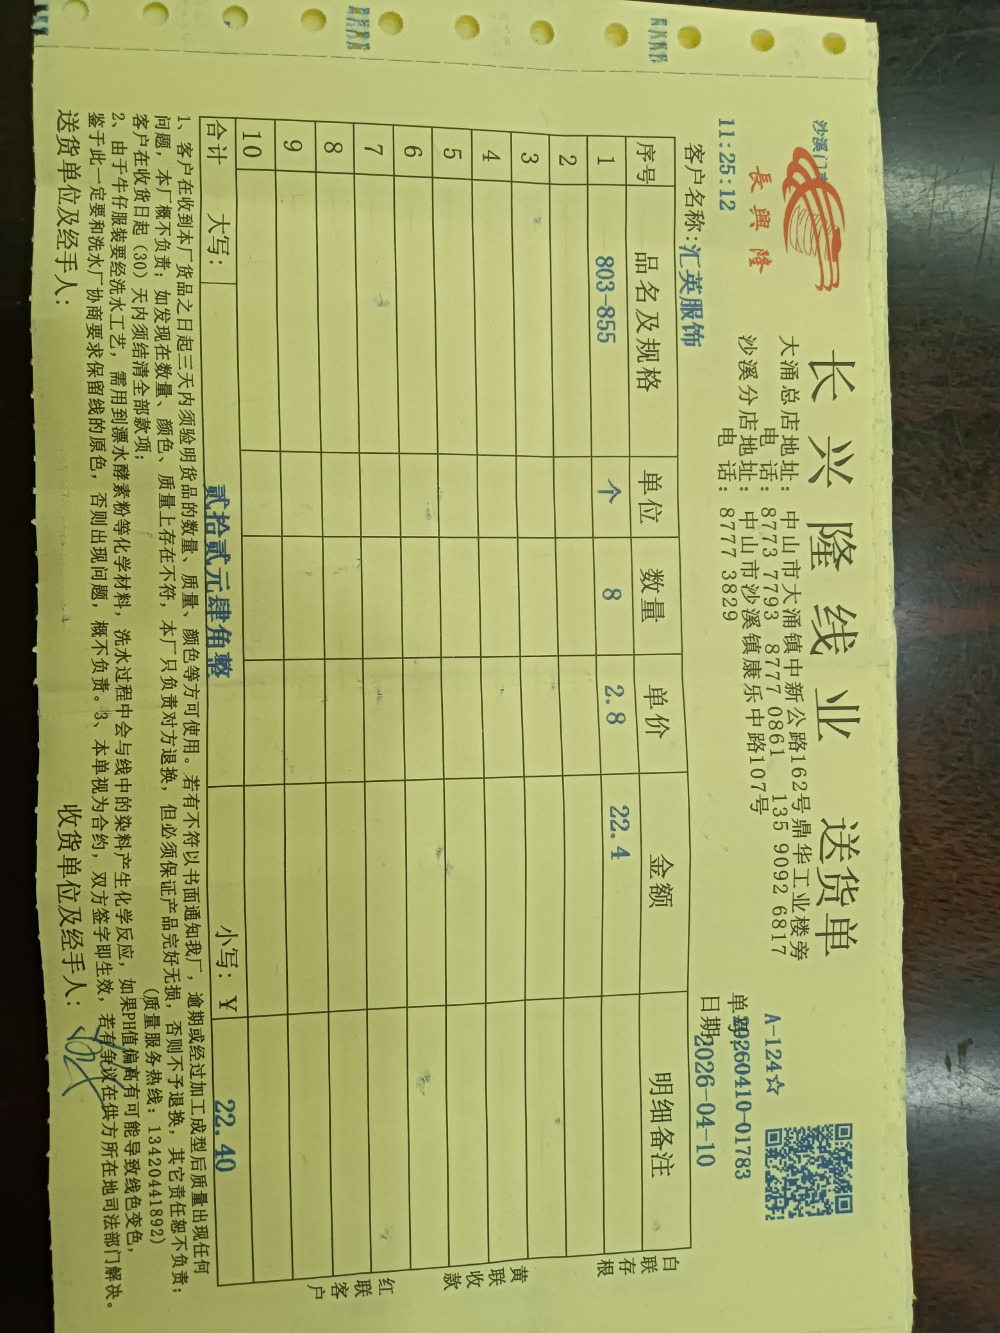 沙溪门
長興隆
长兴隆线业 送货单
大涌总店地址：中山市大涌镇中新公路162号鼎华工业楼旁
电 话：8773 7793 8777 0861 135 9092 6817
沙溪分店地址：中山市沙溪镇康乐中路107号
电 话：8777 3829
A-124☆
11:25:12
单号：20260410-01783
客户名称：汇英服饰
日期：2026-04-10
序号 品名及规格 单位 数量 单价 金额 明细备注
1 803-855 个 8 2.8 22.4
2
3
4
5
6
7
8
9
10
合计 大写： 贰拾贰元肆角整 小写：￥ 22.40
白联存根
黄联收款
红联客户
1、客户在收到本厂货品之日起三天内须验明货品的数量、质量、颜色等方可使用。若有不符以书面通知我厂，逾期或经过加工成型后质量出现任何
问题，本厂概不负责；如发现在数量、颜色、质量上存在不符，本厂只负责对方退换，但必须保证产品完好无损，否则不予退换，其它责任恕不负责；
客户在收货日起（30）天内须结清全部款项； （质量服务热线：13420441892）
2、由于牛仔服装要经洗水工艺，需用到漂水酵素粉等化学材料，洗水过程中会与线中的染料产生化学反应，如果PH值偏高有可能导致线色变色，
鉴于此一定要和洗水厂协商要求保留线的原色，否则出现问题，概不负责。3、本单视为合约，双方签字即生效，若有争议在供方所在地司法部门解决。
送货单位及经手人： 收货单位及经手人：